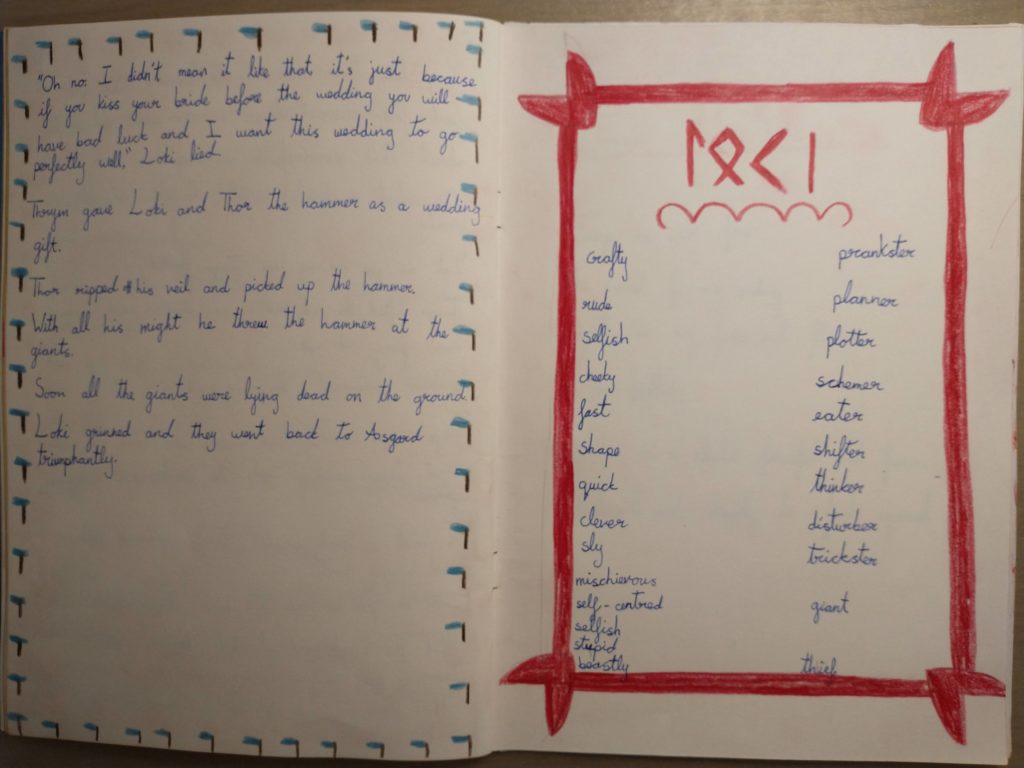 "Oh no: I didn't mean it like that it's just because
if you kiss your bride before the wedding you will
have bad luck and I want this wedding to go
perfectly well," Loki lied
Thrym gave Loki and Thor the hammer as a wedding
gift.
Thor ripped his veil and picked up the hammer.
With all his might he threw the hammer at the
giants.
Soon all the giants were lying dead on the ground.
Loki grinned and they went back to Asgard
triumphantly.
ᛚᛟᚲᛁ
crafty prankster
rude planner
selfish plotter
cheeky schemer
fast eater
shape shifter
quick thinker
clever disturber
sly trickster
mischievous
self-centred giant
selfish
stupid
beastly thief